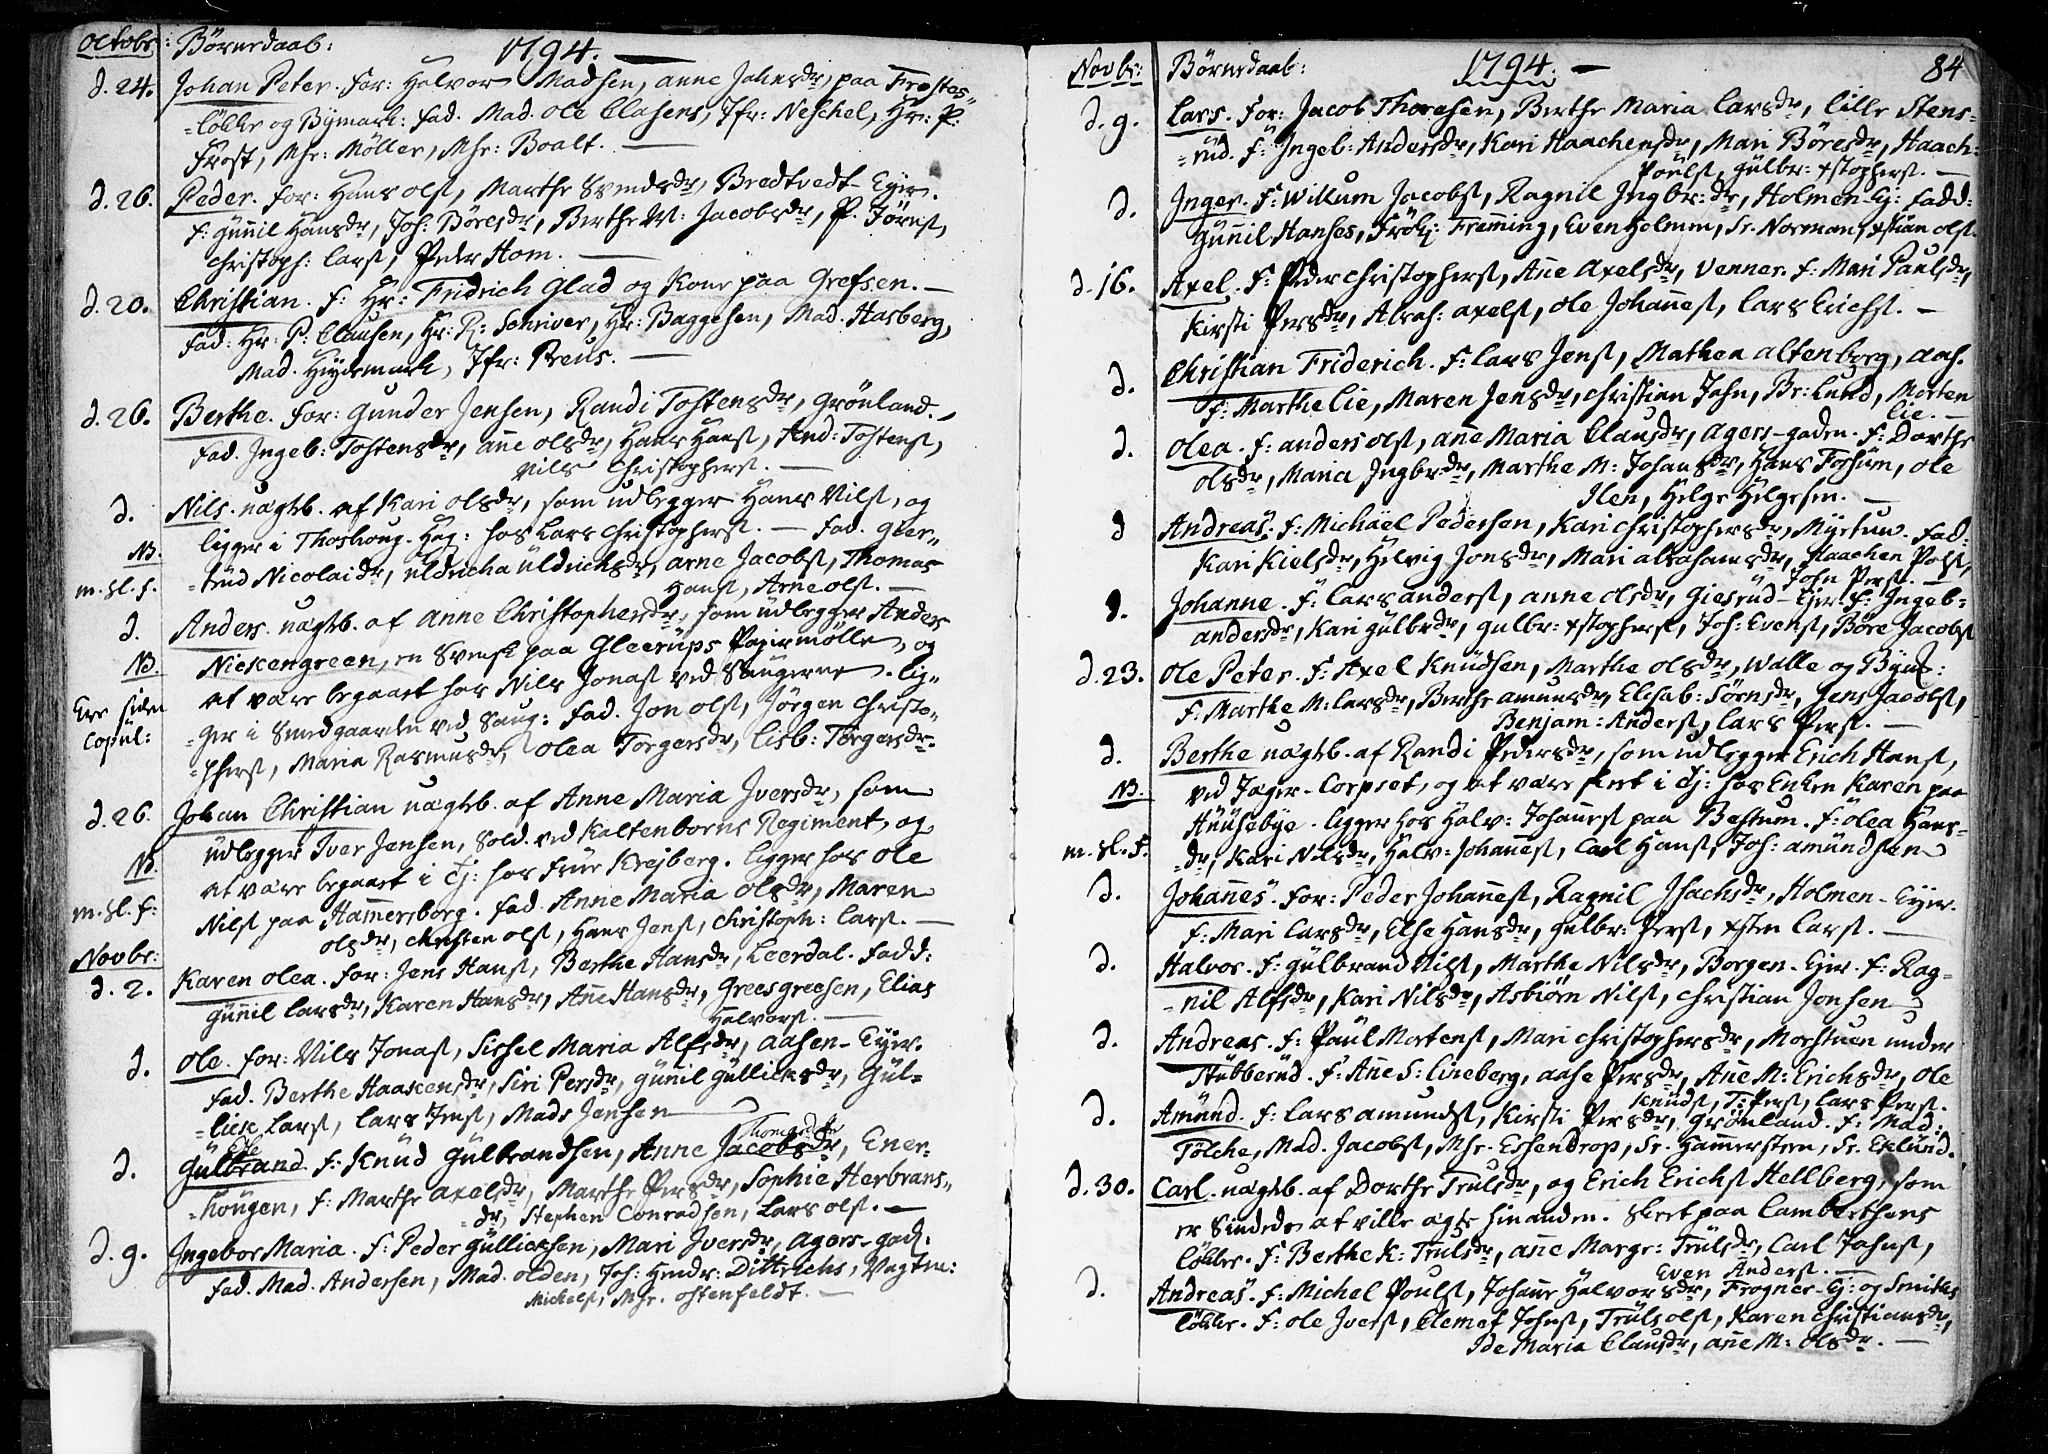 Octobr: Börnedaab: 1794. —
d. 24. Johan Peter. For: Halvor Madsen, Anne Johnsdr, paa Frostes-
=lökke og Bÿmark: fad. Mad. Ole Clasens, Jfr: Neschel, Hr: P:
Frost, Mhr: Möller, Mhr: Boalt. —
d. 26. Peder. For: Hans Olss, Marthe Svendsdr, Bredtvedt-Eÿer.
F: Guñil Hansdr, Joh: Böresdr, Berthe M: Jacobsdr, P. Jörns,
Christoph: Larss, Peder Hom. —
d. 20. Christian. F: Hr: Fridrich Glad og Kone paa Grefsen. —
Fad: Hr: P: Clausen, Hr: R: Schriver, Hr: Baggesen, Mad. Hasberg,
Mad. Heÿdemark, Jfr: Preus. —
d. 26. Berthe. For: Gunder Jensen, Randi Tostensdr, Grönland. —
Fad. Ingeb: Tostensdr, Añe Olsdr, Hans Hanss, And: Tostenss,
Nils Christopherss. —
d. Nils. uægteb. af Kari Olsdr, som udlegger Hans Nilss, og
ligger i Thoshoug. Hag: hos Lars Christopherss. — Fad. Gier-
NB. =trud Nicolaidr, Uldricha Uldrichsdr, Arne Jacobss, Thomas
m. sl. f. Hanss, Arne Olss. —
d. Anders. uægteb. af Anne Christophersdr, som udlegger Anders
NB. Nickengreen, en Svensk paa Gleerups Papirmölle, og
at være begaaet hos Nils Jonass ved Saugerne. lig-
Ere siden =ger i Smedgaarden ved Saug: Fad. Jon Olss, Jörgen Christo-
Copul: =pherss, Maria Rasmusdr, Olea Torgersdr, Lisb: Torgersdr.
d. 26. Johan Christian uægteb. af Anne Maria Iversdr, som
udlegger Iver Jensen, Sold. ved Kaltenborns Regiment, og
NB. at være begaaet i Tj: hos Frue Krejberg. ligger hos Ole
m. sl. f: Nilss paa Hamersborg. Fad. Anne Maria Olsdr, Maren
Olsdr, Christen Olss, Hans Jenss, Christoph: Larss. —
Novbr:
d. 2. Karen Olea. For: Jens Hanss, Berthe Hansdr, Leerdal. Fadd:
Guñil Larsdr, Karen Hansdr, Añe Hansdr, Greesgreesen, Elias
Halvorss. —
d. Ole. For: Nils Jonass, Sissel Maria Alfsdr, Aasen-Eÿer.
Fad. Berthe Haakensdr, Siri Persdr, Guñil Gullicksdr, Gul=
=lick Larss, Lars Jenss, Mads Jensen —
Thomasdr
d. Gulbrand. F: Knud Gulbrandsen, Anne Jacobsdr, Ener-
=hougen, F: Marthe Axelsdr, Marthe Persdr, Sophie Herbrans-
=dr, Stephen Conradsen, Lars Olss. —
d. 9. Ingebor Maria. F: Peder Gullicksen, Mari Iversdr, Agers-gad.
Fad. Mad. Andersen, Mad. Olden, Joh: Hendr: Dittrichs, Vagtm:
Michelss, Mhr. Ostenfeldt. —
Novbr: Börnedaab: 1794. — 84
d. 9. Lars. For: Jacob Thoresen, Berthe Maria Larsdr, Lille Stens-
=rud. F: Ingeb: Andersdr, Kari Haachensdr, Mari Böresdr, Haach:
Poulss, Gulbr: Xstopherss. —
d. Inger. F: Willum Jacobss, Ragnil Ingbr: dr, Holmen-Ej: Fadd:
Guñil Hanses, Frök: Fremming, Even Holmen, Sr. Norman, Xstian Olss.
d. 16. Axel. F: Peder Christopherss, Añe Axelsdr, Venner. F: Mari Paulsdr,
Kirsti Persdr, Abrah: Axelss, Ole Johañess, Lars Erichss. —
d. Christian Friderich. F: Lars Jenss, Mathea Altenborg, Aas.
F: Marthe Lie, Maren Jensdr, Christian John, Br: Lund, Morten
Lie. —
d. Olea. F: Anders Olss, Añe Maria Clausdr, Agers-gaden. F: Dorthe
Olsdr, Maria Ingbrdr, Marthe M: Johansdr, Hans Fossum, Ole
Ilen, Helge Helgesen. —
d Andreas. F: Michäel Pedersen, Kari Christophersdr, Mÿrstun. Fad:
Kari Kielsdr, Helvig Jonsdr, Mari Abrahamsdr, Haachen Polss,
John Perss. —
d. Johanne. F: Lars Anderss, Anne Olsdr, Giesrud-Ejer. F: Ingeb-
Andersdr, Kari Gulbrdr, Gulbr: Xstopherss, Joh: Evenss, Böre Jacobss
d. 23. Ole Peter. F: Axel Knudsen, Marthe Olsdr, Walle og Bÿm:
F: Marthe M: Larsdr, Berthe Amunsdr, Elisab: Sörnsdr, Jens Jacobss,
Benjam: Anderss, Lars Perss. —
d. Berthe uægteb. af Randi Pedersdr, som udlegger Erich Hanss,
NB. ved Jæger-Corpset, og at være skeet i Tj: hos Enken Karen paa
Huusebÿe. ligger hos Halv: Johañess paa Bestum. F: Olea Hans-
m. sl. f. =dr, Kari Nilsdr, Halv: Johañess, Carl Hanss, Joh: Amundsen
d. Johañes. For: Peder Johañess, Ragnil Isachsdr, Holmen-Eÿer.
F: Mari Larsdr, Else Hansdr, Gulbr: Perss, Xsten Larss. —
d. Halvor. F: Gulbrand Nilss, Marthe Nilsdr, Borgen-Ejer. F: Rag-
=nil Alfsdr, Kari Nilsdr, Asbiörn Nilss, Christian Jonsen
d. Andreas. F: Paul Mortenss, Mari Christophersdr, Morstuen under
Stubberud. F: Añe S: Lineberg, Aase Persdr, Añe M: Erichsdr, Ole
Knudss, T: Perss, Lars Perss.
d. Amund. F: Lars Amundss, Kirsti Persdr, Grönland. F: Mad:
Tölche, Mad. Jacobss, Mhr. Essendrop, Sr. Hammersten, Sr. Eklund.
d. 30. Carl. uægteb. af Dorthe Trulsdr, og Erich Erichss Hellberg, som
er Sindede at ville ægte hinanden. Skeet paa Lamberthens
lökke. F: Berthe K: Trulsdr, Añe Margr: Trulsdr, Carl Johnss,
Even Anderss. —
d. Andreas. F: Michel Poulss, Johane Halvorsdr, Frogner-Ej: og Smithes
lökke. F: Ole Iverss, Clemet Johnss, Truls Olss, Karen Christiansdr,
Ide Maria Clausdr, Añe M: Olsdr. —